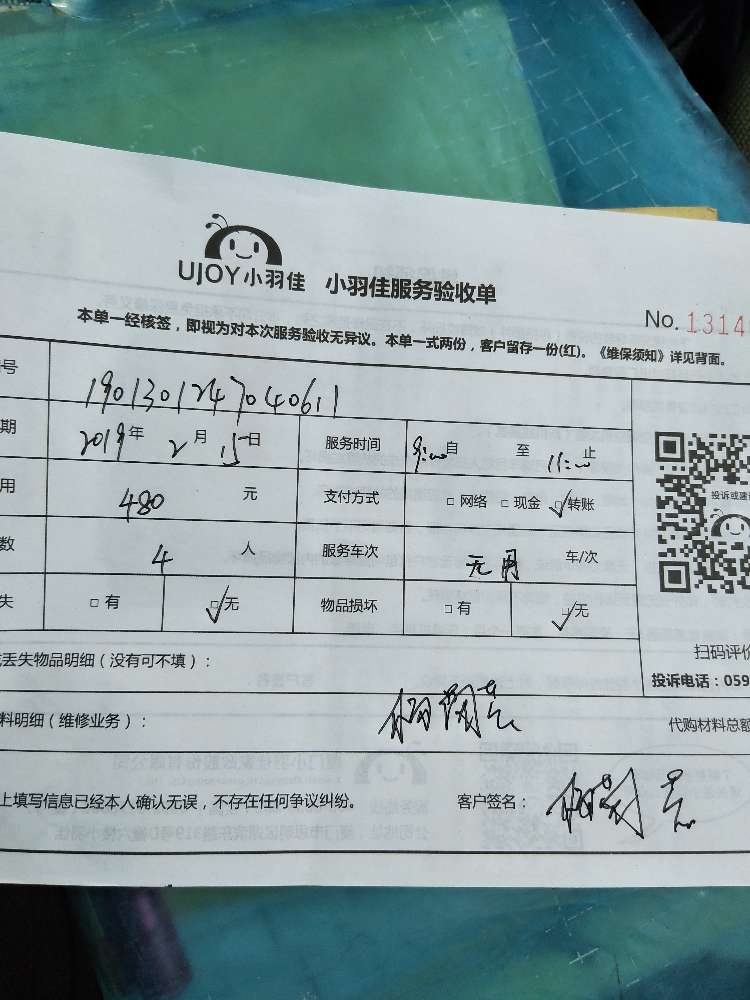 UJOY小羽佳 小羽佳服务验收单
No. 1314
本单一经核签，即视为对本次服务验收无异议。本单一式两份，客户留存一份(红)。《维保须知》详见背面。
号 1901301247040611
期 2019年 2月 15日 服务时间 9:00自 至 11:00止
用 480 元 支付方式 □ 网络 □ 现金 ☑转账
投诉或建议
数 4 人 服务车次 无用 车/次
失 □ 有 ☑无 物品损坏 □ 有 ☑无
扫码评价
丢失物品明细（没有可不填）：
投诉电话：059
料明细（维修业务）：
代购材料总额
上填写信息已经本人确认无误，不存在任何争议纠纷。 客户签名：